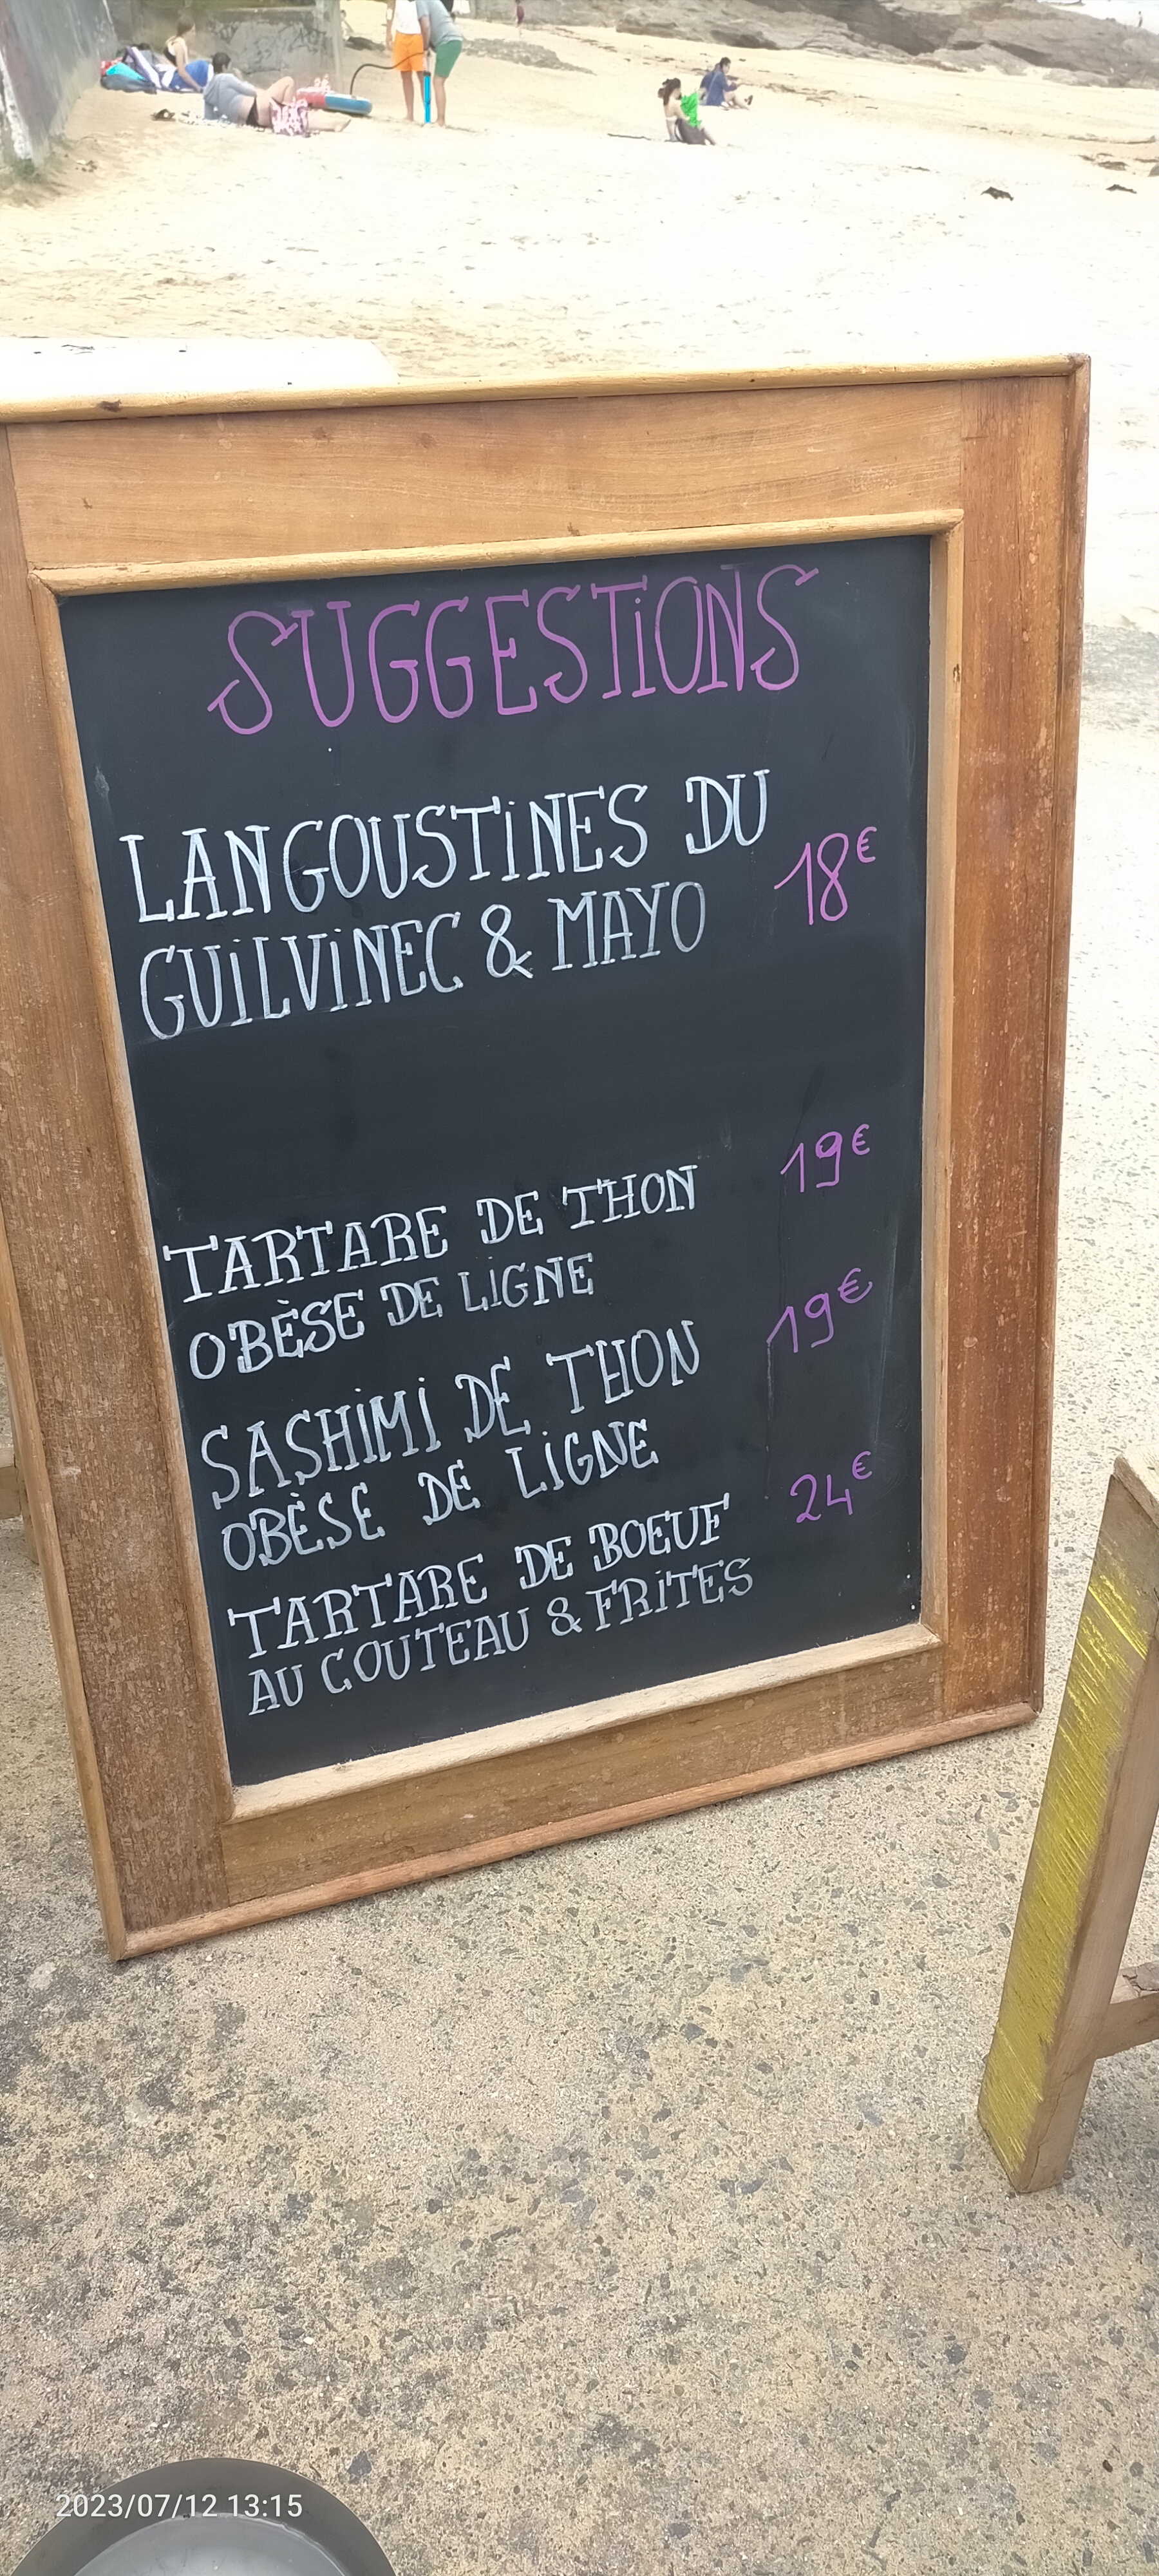 SUGGESTIONS
LANGOUSTINES DU
18€
GUILVINEC & MAYO
19€
TARTARE DE THON
OBÈSE DE LIGNE
19€
SASHIMI DE THON
OBÈSE DE LIGNE
24€
TARTARE DE BOEUF
AU COUTEAU & FRITES
2023/07/12 13:15